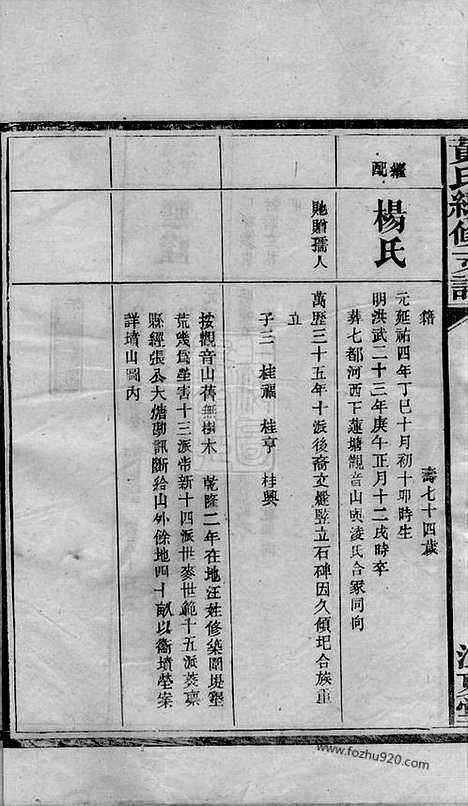 黃氏續修支譜
江夏堂
籍
壽七十四歲
繼配
楊氏
元延祐四年丁巳十月初十卯時生
明洪武二十三年庚午正月十二戌時卒
葬七都河西下蓮塘觀音山與淩氏合冢同向
貤贈孺人
萬歷三十五年十派後裔文燈竪立石碑因久傾圯合族重
立
子三 桂福 桂亨 桂興
按觀音山舊無樹木 乾隆二年在地汪姓修築圍堤塋
荒幾爲塋害十三派帝新十四派世麥世範十五派葵稟
縣經張公大憺勘訊斷給山外餘地四十畝以衞墳塋案
詳墳山圖內
www.fozhu920.com